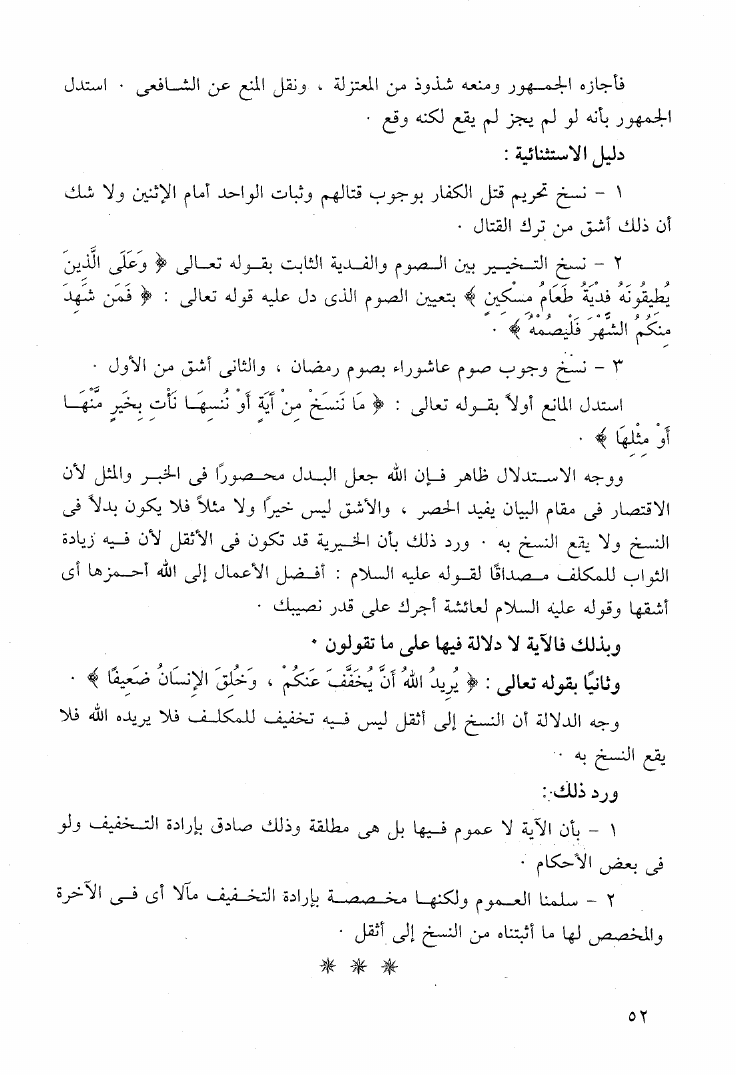 فأجازه الجمهور ومنعه شذوذ من المعتزلة ، ونقل المنع عن الشافعى . استدل
الجمهور بأنه لو لم يجز لم يقع لكنه وقع .
دليل الاستثنائية :
١ - نسخ تحريم قتل الكفار بوجوب قتالهم وثبات الواحد أمام الإثنين ولا شك
أن ذلك أشق من ترك القتال .
٢ - نسخ التخيير بين الصوم والفدية الثابت بقوله تعالى ﴿ وَعَلَى الَّذِينَ
يُطِيقُونَهُ فِدْيَةٌ طَعَامُ مِسْكِينٍ ﴾ بتعيين الصوم الذى دل عليه قوله تعالى : ﴿ فَمَن شَهِدَ
مِنكُمُ الشَّهْرَ فَلْيَصُمْهُ ﴾ .
٣ - نسخ وجوب صوم عاشوراء بصوم رمضان ، والثانى أشق من الأول .
استدل المانع أولاً بقوله تعالى : ﴿ مَا نَنسَخْ مِنْ آيَةٍ أَوْ نُنسِهَا نَأْتِ بِخَيْرٍ مِّنْهَا
أَوْ مِثْلِهَا ﴾ .
ووجه الاستدلال ظاهر فإن الله جعل البدل محصورًا فى الخبر والمثل لأن
الاقتصار فى مقام البيان يفيد الحصر ، والأشق ليس خيرًا ولا مثلاً فلا يكون بدلاً فى
النسخ ولا يقع النسخ به . ورد ذلك بأن الخيرية قد تكون فى الأثقل لأن فيه زيادة
الثواب للمكلف مصداقًا لقوله عليه السلام : أفضل الأعمال إلى الله أحمزها أى
أشقها وقوله عليه السلام لعائشة أجرك على قدر نصيبك .
وبذلك فالآية لا دلالة فيها على ما تقولون .
وثانيًا بقوله تعالى : ﴿ يُرِيدُ اللهُ أَنْ يُخَفِّفَ عَنكُمْ ، وَخُلِقَ الإِنسَانُ ضَعِيفًا ﴾ .
وجه الدلالة أن النسخ إلى أثقل ليس فيه تخفيف للمكلف فلا يريده الله فلا
يقع النسخ به .
ورد ذلك :
١ - بأن الآية لا عموم فيها بل هى مطلقة وذلك صادق بإرادة التخفيف ولو
فى بعض الأحكام .
٢ - سلمنا العموم ولكنها مخصصة بإرادة التخفيف مآلا أى فى الآخرة
والمخصص لها ما أثبتناه من النسخ إلى أثقل .
* * *
٥٢